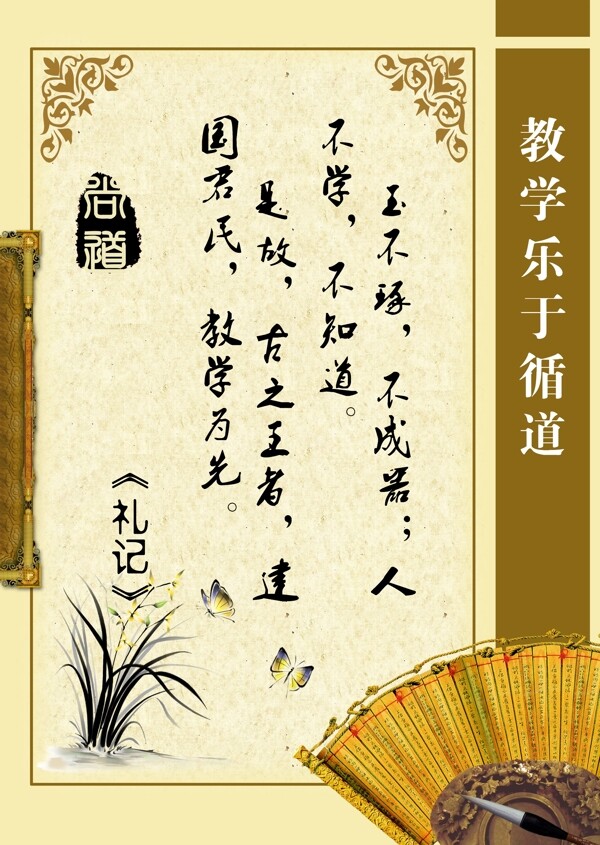 教学乐于循道
玉不琢，不成器；人
不学，不知道。
是故，古之王者，建
国君民，教学为先。
《礼记》
尚道